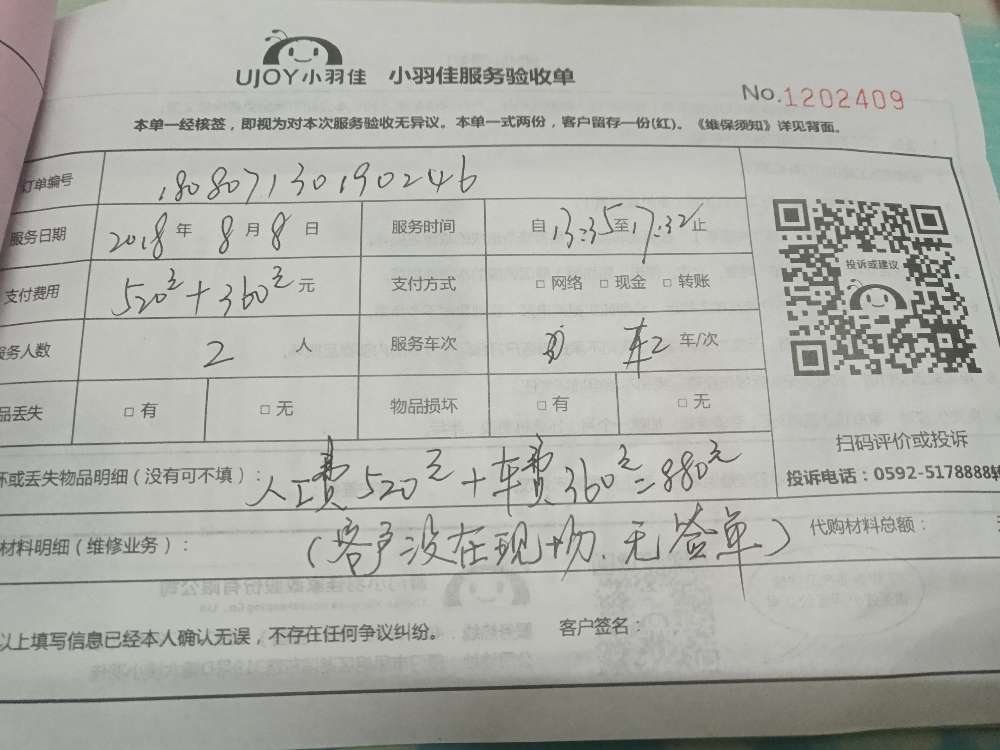 UJOY小羽佳 小羽佳服务验收单
No.1202409
本单一经核签，即视为对本次服务验收无异议。本单一式两份，客户留存一份(红)。《维保须知》详见背面。
订单编号 180807130190246
服务日期 2018年 8月8日 服务时间 自13:35至17:32止
支付费用 520元+360元元 支付方式 □网络 □现金 □转账
投诉或建议
服务人数 2 人 服务车次 车2 车/次
品丢失 □有 □无 物品损坏 □有 □无
扫码评价或投诉
坏或丢失物品明细（没有可不填）： 人工费520元+车费360元=880元
投诉电话：0592-5178888转
材料明细（维修业务）： （客户没在现场.无签单） 代购材料总额：
以上填写信息已经本人确认无误，不存在任何争议纠纷。 客户签名：